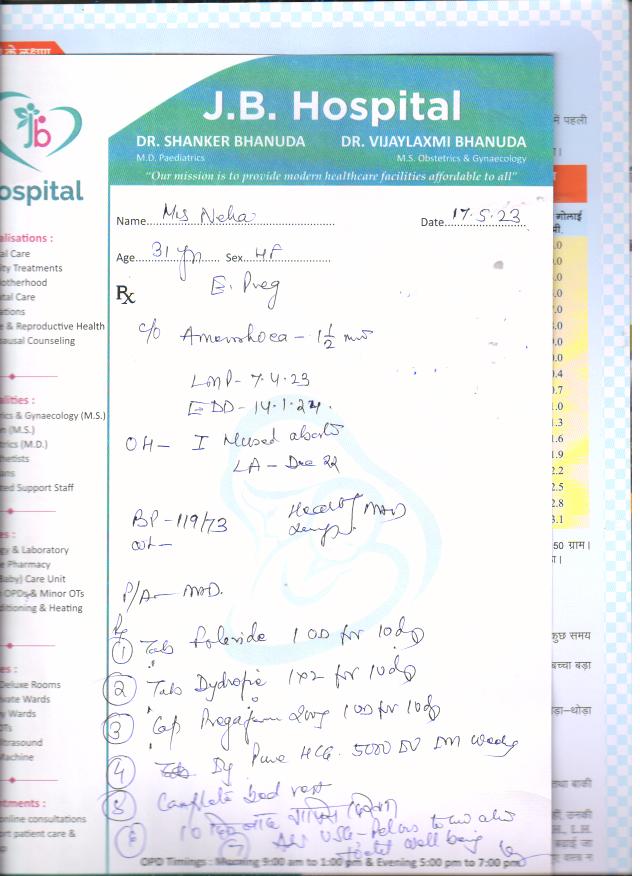 के लक्षण
J.B. Hospital
DR. SHANKER BHANUDA DR. VIJAYLAXMI BHANUDA
M.D. Paediatrics M.S. Obstetrics & Gynaecology
"Our mission is to provide modern healthcare facilities affordable to all"
Jb
ospital
Name Mrs Neha Date 17.5.23
Age 31 yr Sex HF
Rx E. Preg
c/o Amenorrhoea - 1 1/2 
LMP - 7.4.23
EDD - 14.1.24.
OH - I Missed abortn
LA - Dec 22
BP - 119/73 Heart NAD
wt - Lungs
P/A - NAD.
Rx
① Tab 1 OD for 10 day
② Tab 1x2 for 10 day
③ Cap 200mg 1 OD for 10 day
④ Inj Pure HCG 5000 IU IM weekly
⑤ Complete bed rest
⑥ 10 दिन बाद
⑦ Adv USG - Pelvis to see
foetal well being
OPD Timings : Morning 9:00 am to 1:00 pm & Evening 5:00 pm to 7:00 pm
alisations :
al Care
ity Treatments
otherhood
tal Care
ations
e & Reproductive Health
ausal Counseling
lities :
ics & Gynaecology (M.S.)
n (M.S.)
rics (M.D.)
hetists
ans
ted Support Staff
es :
gy & Laboratory
e Pharmacy
Baby) Care Unit
OPDs & Minor OTs
ditioning & Heating
es :
Deluxe Rooms
vate Wards
y Wards
OTs
ltrasound
Machine
tments :
online consultations
ort patient care &
में पहली
गोलाई
मी.
.0
.0
.0
.0
.0
.0
0.4
0.7
1.0
1.3
1.6
1.9
2.2
2.5
2.8
3.1
50 ग्राम।
कुछ समय
बच्चा बड़ा
ड़ा-थोड़ा
तथा बाकी
हीं, उनकी
H., L.H.
बढ़ाई जा